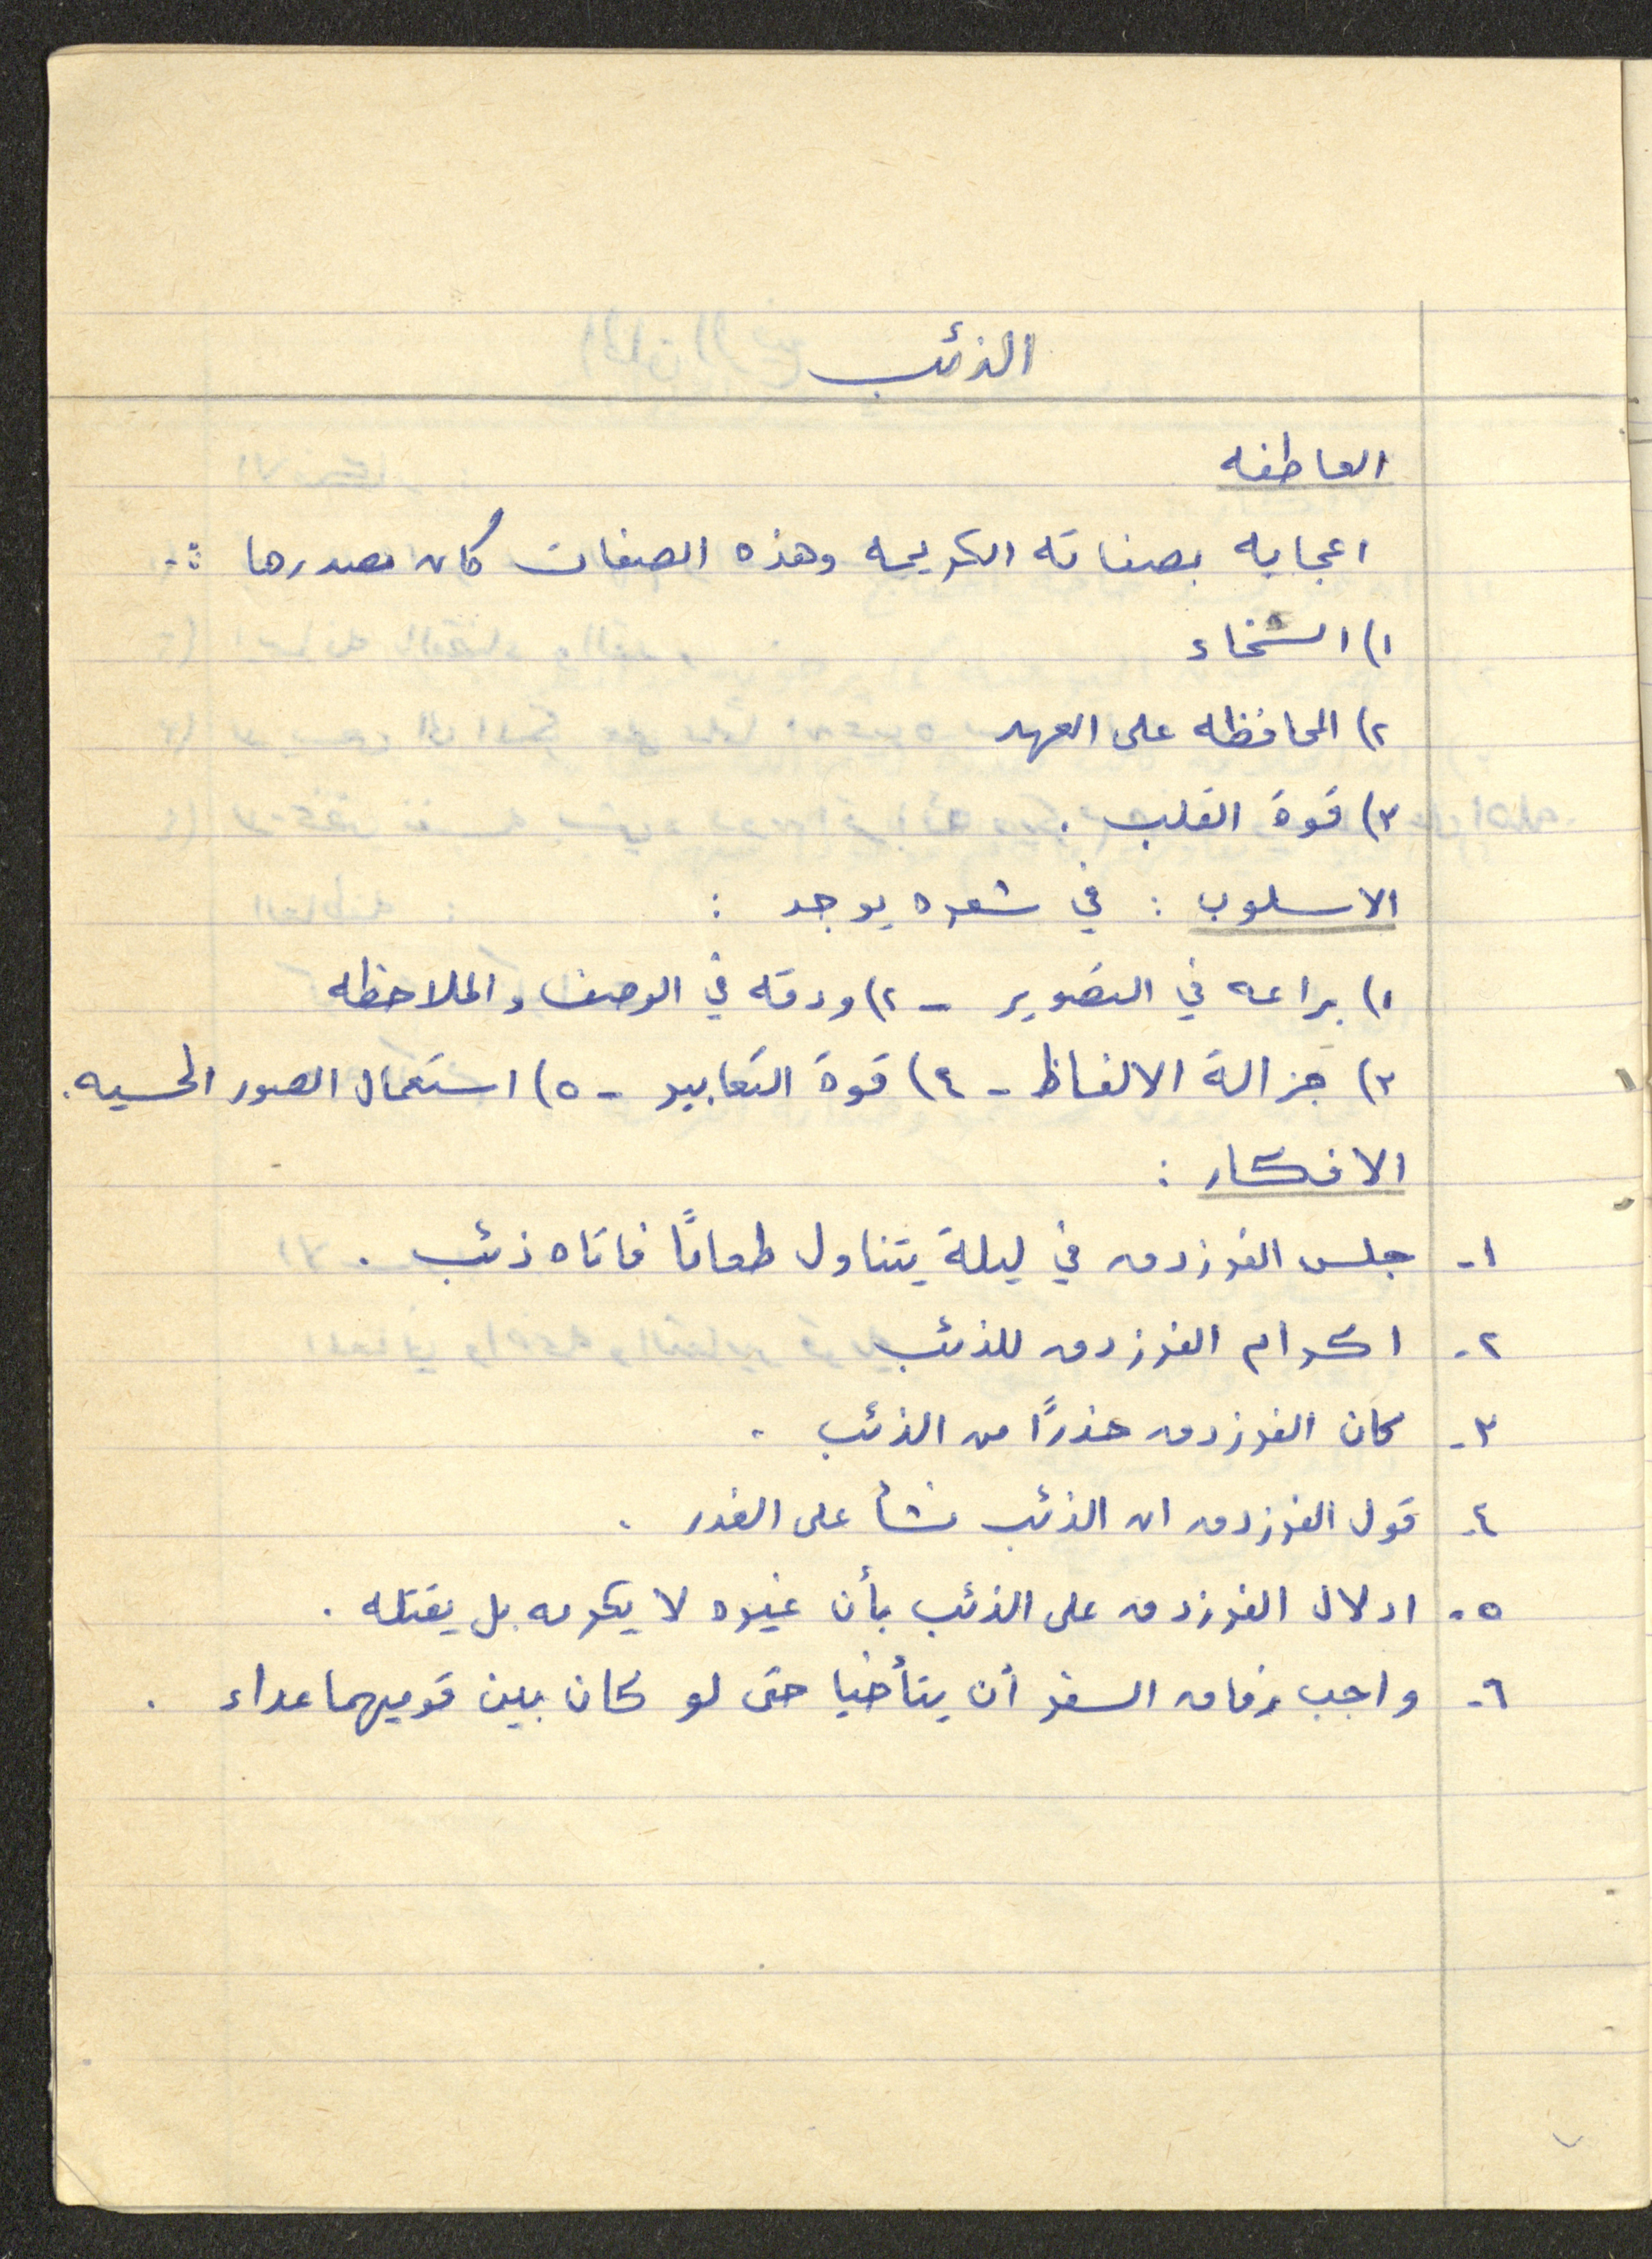 الذئب
العاطفه
اعجابه بصفاته الكريمه وهذه الصفات كان مصدرها :-
١) السخاء
٢) المحافظه على العهد
٣) قوة القلب .
الاسلوب : في شعره يوجد :
١) براعه في التصوير - ٢) ودقه في الوصف والملاحظه
٣) جزالة الالفاظ - ٤) قوة التعابير - ٥) استعمال الصور الحسيه .
الافكار :
١- جلس الفرزدق في ليلة يتناول طعامًا فاتاه ذئب .
٢- اكرام الفرزدق للذئب
٣- كان الفرزدق حذرًا من الذئب .
٤- قول الفرزدق ان الذئب نشأ على الغدر .
٥- ادلال الفرزدق على الذئب بأن غيره لا يكرمه بل يقتله .
٦- واجب رفاق السفر أن يتأخيا حتى لو كان بين قوميهما عداء .